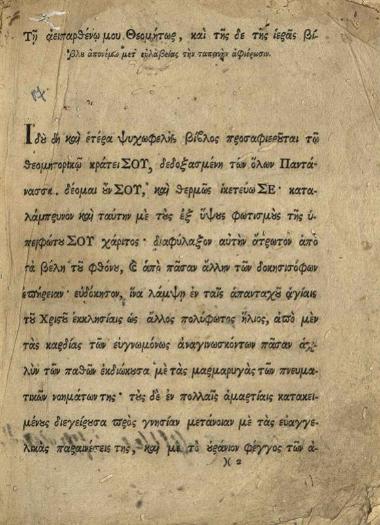 Τῇ ἀειπαρθένῳ μου Θεομήτορι, καὶ τῆς δε τῆς ἱερᾶς βί-
βλου ἀπονέμω μετ' εὐλαβείας τὴν ταπεινὴν ἀφιέρωσιν.
Ἰδοὺ δὴ καὶ ἑτέρα ψυχωφελὴς βίβλος προσαφιεροῦται τῷ
θεομητορικῷ κράτει ΣΟΥ, δεδοξασμένη τῶν ὅλων Παντά-
νασσα. δέομαι οὖν ΣΟΥ, καὶ θερμῶς ἱκετεύω ΣΕ· κατα-
λάμπρυνον καὶ ταύτην μὲ τοὺς ἐξ ὕψους φωτισμοὺς τῆς ὑ-
περφώτου ΣΟΥ χάριτος· διαφύλαξον αὐτὴν ἄτρωτον ἀπὸ
τὰ βέλη τοῦ φθόνου, καὶ ἀπὸ πᾶσαν ἄλλην τῶν δοκησισόφων
ἐπήρειαν· εὐδόκησον, ἵνα λάμψῃ ἐν ταῖς ἁπανταχοῦ ἁγίαις
τοῦ Χριστοῦ ἐκκλησίαις ὡς ἄλλος πολύφωτος ἥλιος, ἀπὸ μὲν
τὰς καρδίας τῶν εὐγνωμόνως ἀναγινωσκόντων πᾶσαν ἀχ-
λὺν τῶν παθῶν ἐκδιώκουσα μὲ τὰς μαρμαρυγὰς τῶν πνευμα-
τικῶν νοημάτων της· τοὺς δὲ ἐν πολλαῖς ἁμαρτίαις κατακει-
μένους διεγείρουσα πρὸς γνησίαν μετάνοιαν μὲ τὰς εὐαγγε-
λικὰς παραινέσεις της, καὶ μὲ τὸ οὐράνιον φέγγος τῶν ἀ-
χ 2